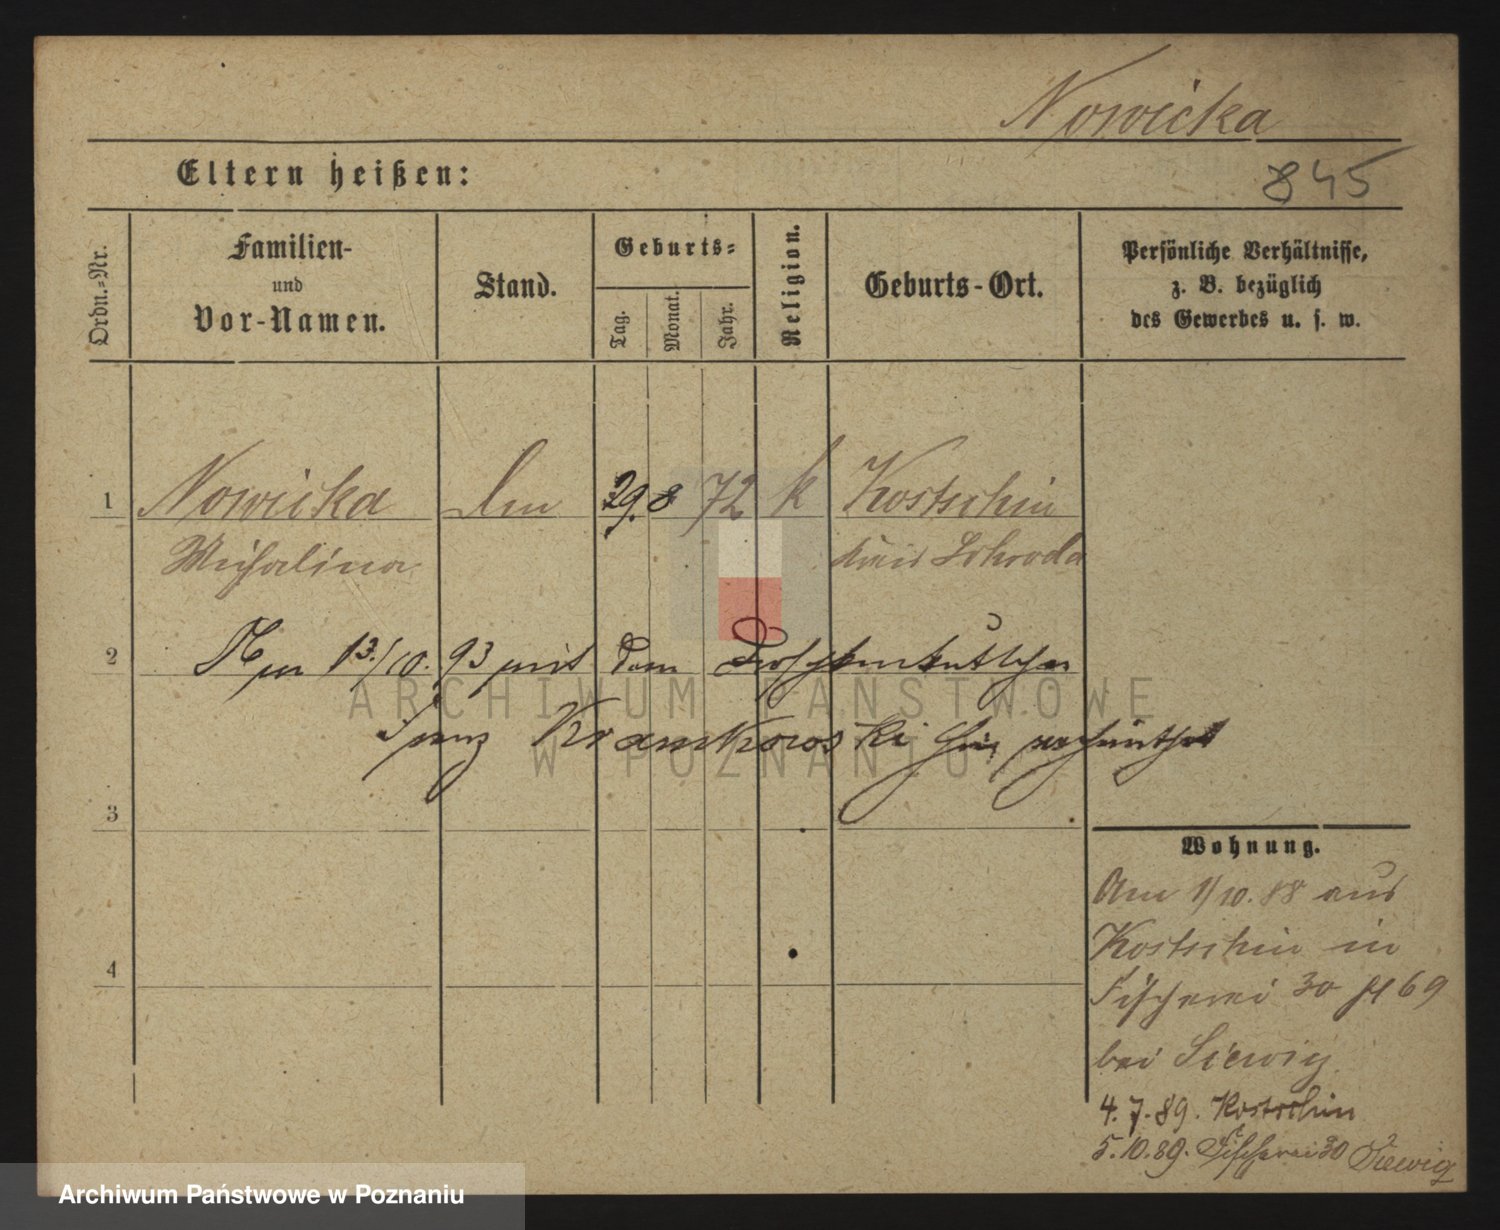 Nowicka
Eltern heißen:
845
Ordn.-Nr.
Familien-
und
Vor-Namen.
Stand.
Geburts-
Tag.
Monat.
Jahr.
Religion.
Geburts-Ort.
Persönliche Verhältnisse,
z. B. bezüglich
des Gewerbes u. s. w.
1 Nowicka 29. 8 72 k Kostschin
Michalina Kreis Schroda
2 13./10. 93 mit dem Droschkenkutscher
Kramkowski hier verheirathet
3
4
Wohnung.
Am 1/10. 88 aus
Kostschin in
Fischerei 30 69
bei Siewig
4. 7. 89. Kostschin
5. 10. 89. Fischerei 30 Siewig
ARCHIWUM PAŃSTWOWE
W POZNANIU
Archiwum Państwowe w Poznaniu